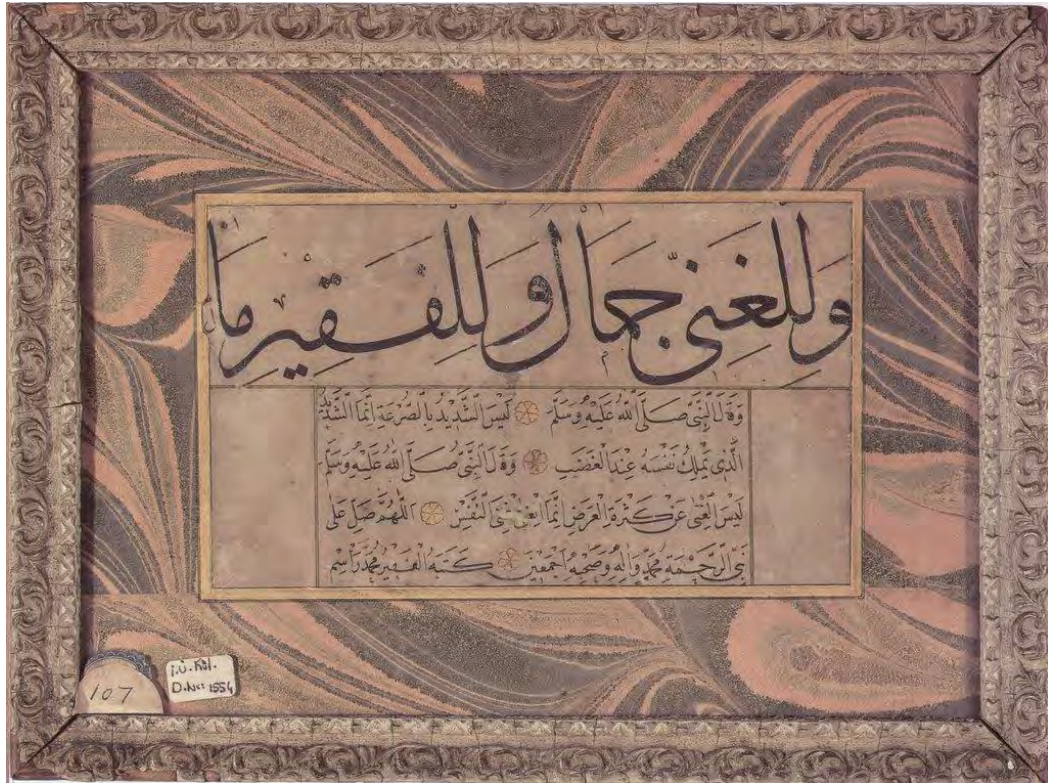 وَلِلْغَنِىِّ جَمَالٌ وَلِلْفَقِيرِ مَالٌ
وَقَالَ النَّبِىُّ صَلَّى اللّٰهُ عَلَيْهِ وَسَلَّمَ لَيْسَ الشَّدِيدُ بِالصُّرَعَةِ اِنَّمَا الشَّدِيدُ
الَّذِى يَمْلِكُ نَفْسَهُ عِنْدَ الْغَضَبِ وَقَالَ النَّبِىُّ صَلَّى اللّٰهُ عَلَيْهِ وَسَلَّمَ
لَيْسَ الْغِنٰى عَنْ كَثْرَةِ الْعَرَضِ اِنَّمَا الْغِنٰى غِنَى النَّفْسِ اَللّٰهُمَّ صَلِّ عَلٰى
نَبِىِّ الرَّحْمَةِ مُحَمَّدٍ وَاٰلِهِ وَصَحْبِهِ اَجْمَعِينَ كَتَبَهُ الْفَقِيرُ مُحَمَّد رَاسِم
107
İ.Ü. Küt.
D.No: 1554